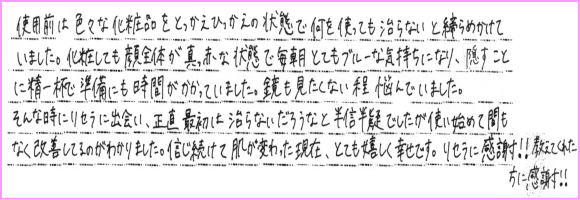 使用前は色々な化粧品をとっかえひっかえの状態で何を使っても治らないと締らめかけて
いました。化粧しても顔全体が真赤な状態で毎朝とてもブルーな気持ちになり、隠すこと
に精一杯で準備にも時間がかかっていました。鏡も見たくない程悩んでいました。
そんな時にリセラに出会い、正直最初は治らないだろうなと半信半疑でしたが使い始めて間も
なく改善してるのがわかりました。信じ続けて肌が変わった現在、とても嬉しく幸せです。リセラに感謝!!教えてくれた
方に感謝!!